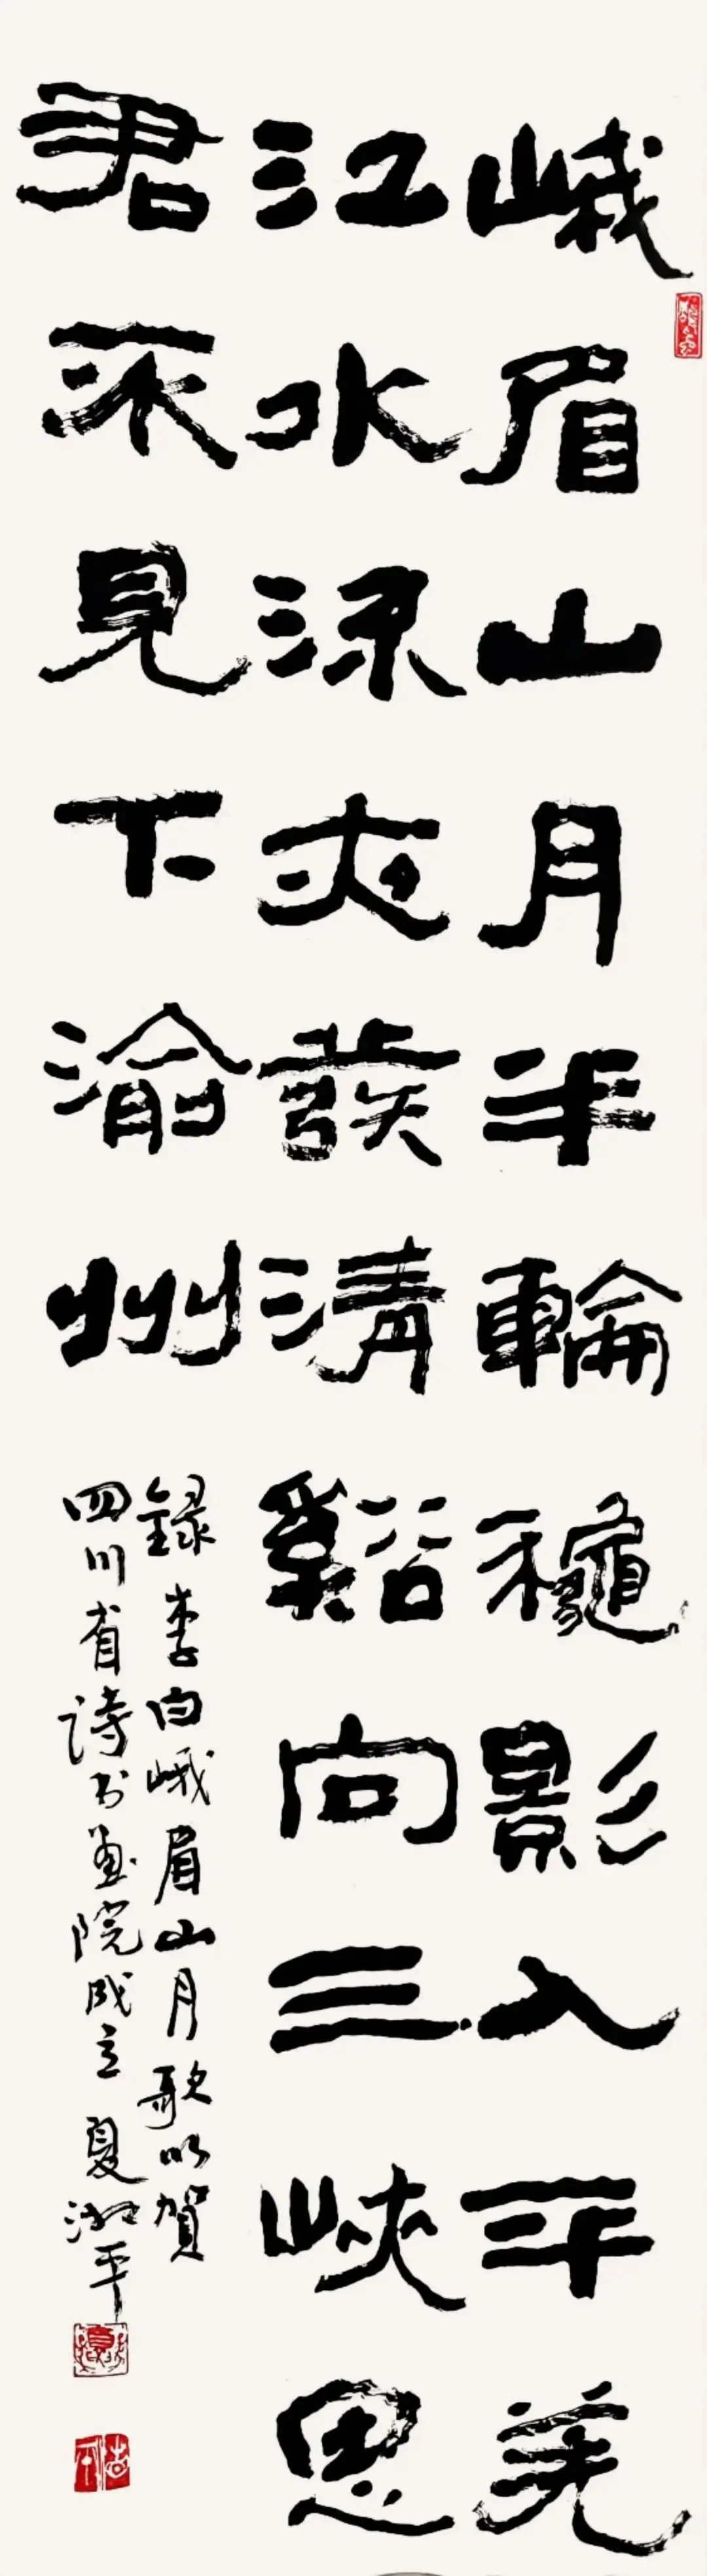 峨眉山月半輪穐影入平羌
江水流夜發清谿向三峽思
君不見下渝州
錄李白峨眉山月歌以賀
四川省詩书畫院成立 夏湘平